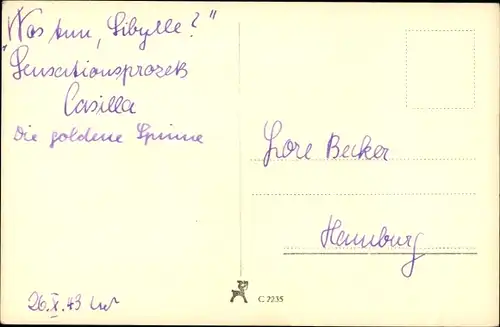 "Was tun, Sibylle?"
Sensationsprozeß
Casilla
Die goldene Spinne
Lore Becker
Hamburg
26.X.43
C 7235